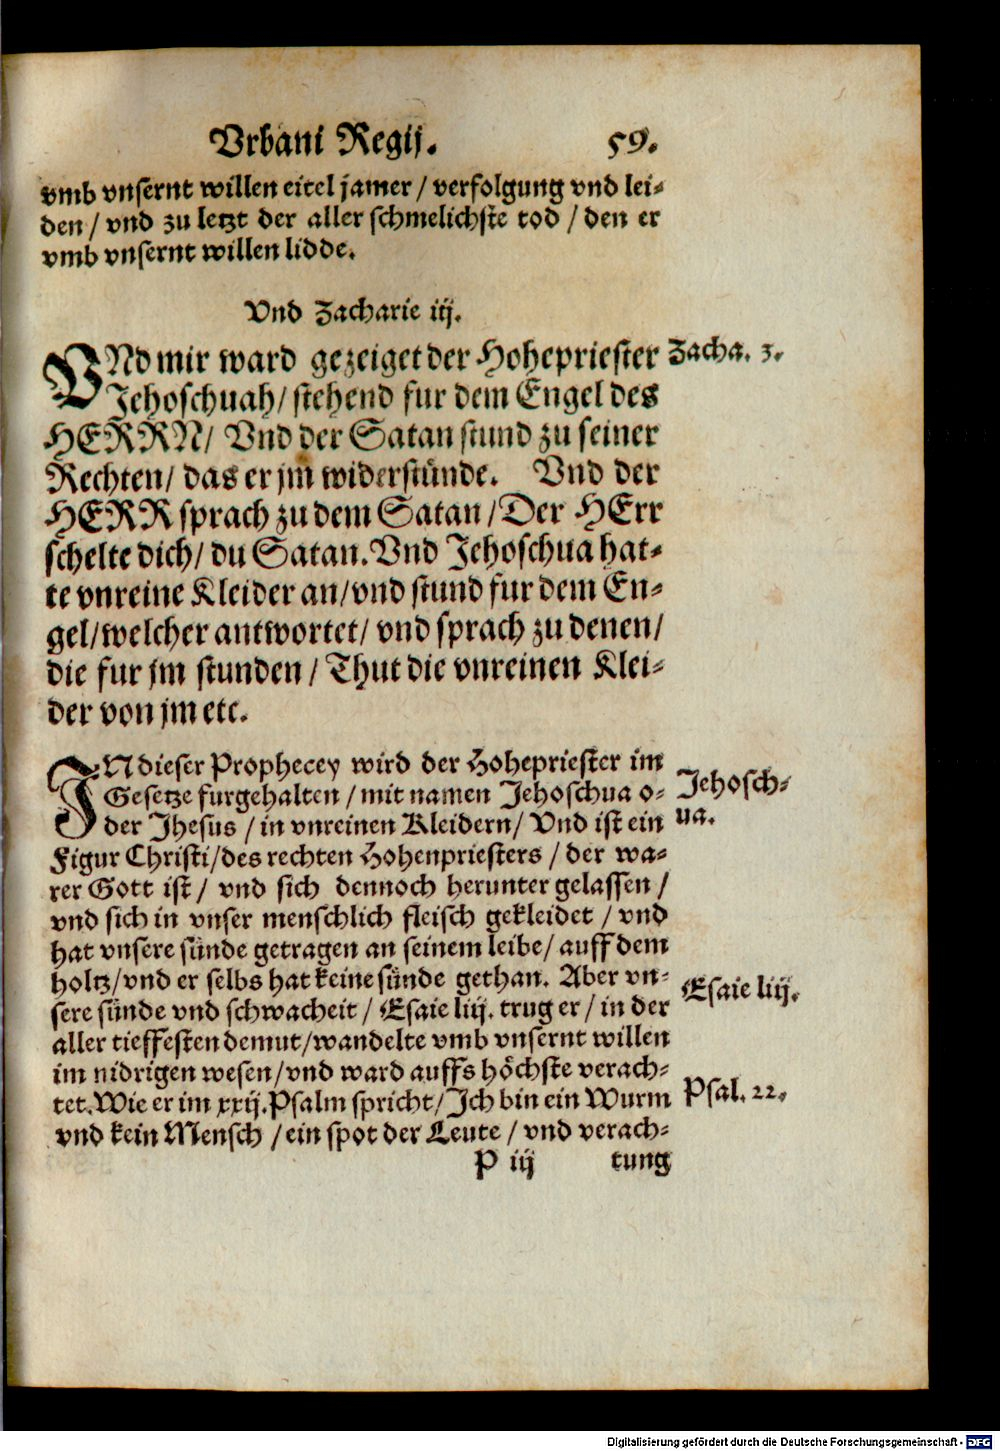 Vrbani Regij. 59.
vmb vnsernt willen eitel jamer / verfolgung vnd lei-
den / vnd zu letzt der aller schmelichste tod / den er
vmb vnsernt willen lidde.
Vnd Zacharie iij.
VNd mir ward gezeiget der Hohepriester Zacha. 3.
Jehoschuah / stehend fur dem Engel des
HERRN / Vnd der Satan stund zu seiner
Rechten / das er jm widerstünde. Vnd der
HERR sprach zu dem Satan / Der HErr
schelte dich / du Satan. Vnd Jehoschua hat-
te vnreine Kleider an / vnd stund fur dem En-
gel / welcher antwortet / vnd sprach zu denen /
die fur jm stunden / Thut die vnreinen Klei-
der von jm etc.
IN dieser Prophecey wird der Hohepriester im
Gesetze furgehalten / mit namen Jehoschua o- Jehosch-
der Jhesus / in vnreinen Kleidern / Vnd ist ein ua.
Figur Christi / des rechten Hohenpriesters / der wa-
rer Gott ist / vnd sich dennoch herunter gelassen /
vnd sich in vnser menschlich fleisch gekleidet / vnd
hat vnsere sünde getragen an seinem leibe / auff dem
holtz / vnd er selbs hat keine sünde gethan. Aber vn- Esaie liij.
sere sünde vnd schwacheit / Esaie liij. trug er / in der
aller tieffesten demut / wandelte vmb vnsernt willen
im nidrigen wesen / vnd ward auffs höchste verach-
tet. Wie er im xxij. Psalm spricht / Ich bin ein Wurm Psal. 22.
vnd kein Mensch / ein spot der Leute / vnd verach-
P iij tung
Digitalisierung gefördert durch die Deutsche Forschungsgemeinschaft - DFG